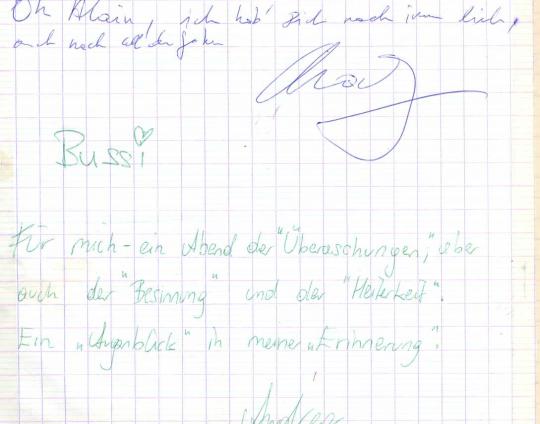 Oh Alain, ich hab' Dich noch immer lieb,
auch nach all' den Jahren
Bussi
Für mich - ein Abend der "Überaschungen", aber
auch der "Besinnung" und der "Heiterkeit".
Ein "Augenblick" in meiner "Erinnerung".
Andrea